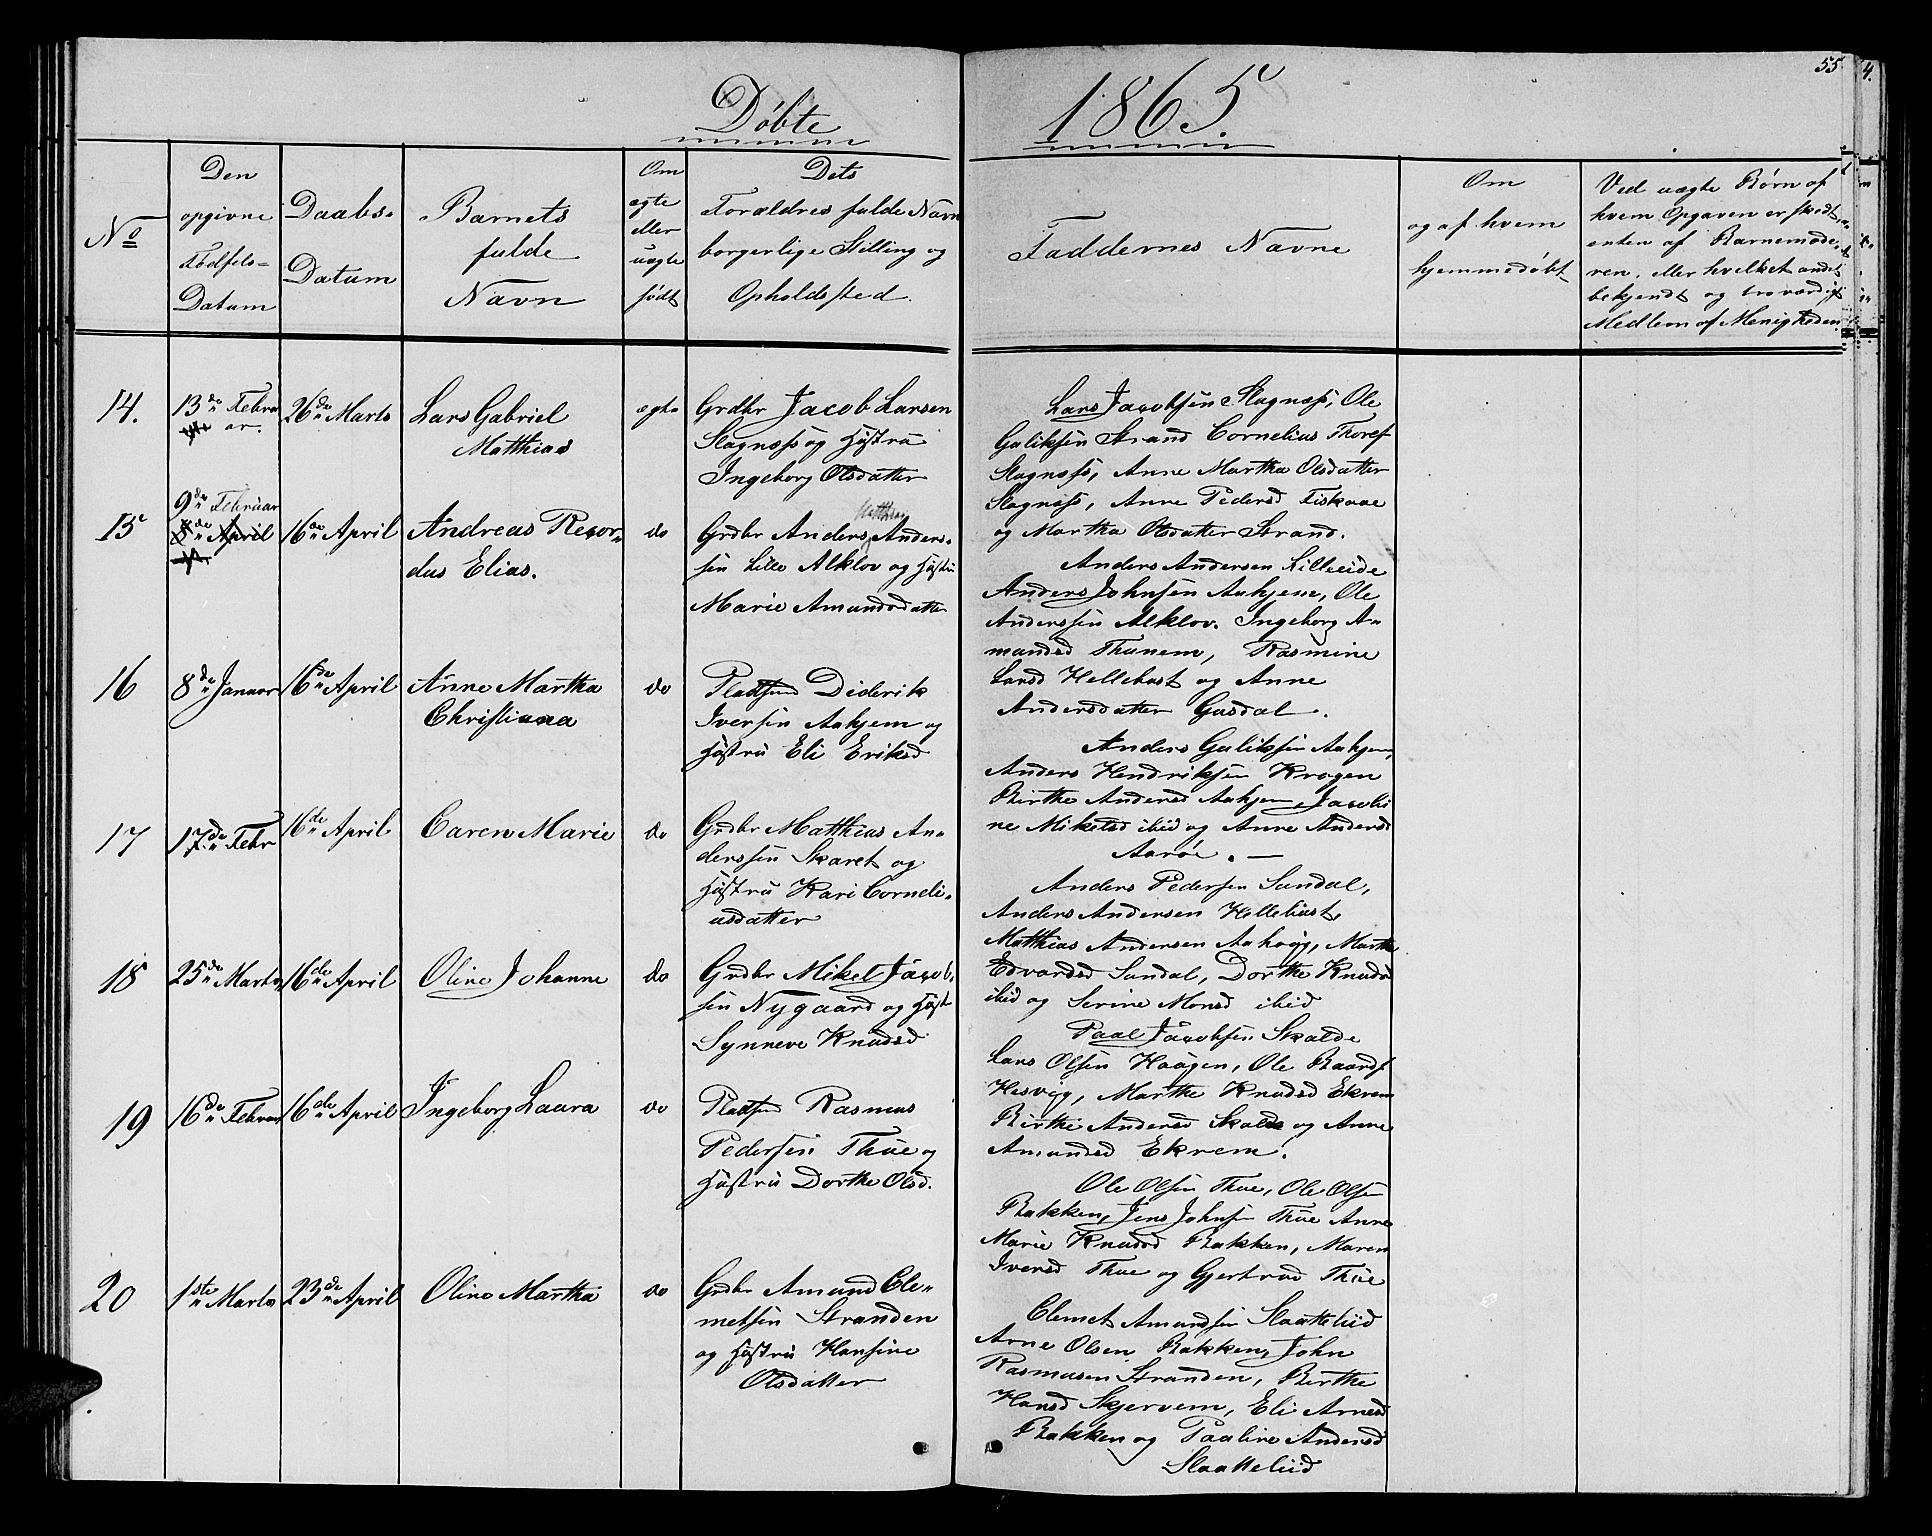 55
4.
Døbte
1865.
No
Den
opgivne
Fødsels-
Datum
Daabs-
Datum
Barnets
fulde
Navn
Om
ægte
eller
uægte
født
Dets
Forældres fulde Navn
borgerlige Stilling og
Opholdssted.
Faddernes Navne
Om
og af hvem
hjemmedøbt
Ved uægte Børn af
hvem Opgaven er skedt
enten af Barnemode-
ren, eller hvilket andet
bekjendt og troværdigt
Medlem af Menigheden
14.
13de Febru
ar.
26de Marts
Lars Gabriel
Matthias
ægte
Grdbr Jacob Larsen
Slagnæss og Hustru
Ingeborg Olsdatter
Lars Jacobsen Slagnæss, Ole
Guliksen Strand Cornelius Thores
Slagnæss, Anne Martha Olsdatter
Slagnæss, Anne Pedersd Fiskaae
og Martha Olsdatter Strand.
15
9de Februar
8de April
16de April
Andreas Recor-
dus Elias.
do
Matthias
Grdbr Anders Anders-
sen Lille Alklov og Hustru
Marie Amundsdatter
Anders Andersen Lilleeide
Anders Johnsen Aahjem, Ole
Anderssen Alklov. Ingeborg A-
mundsd Thunem, Rasmine
Larsd Hellebust og Anne
Andersdatter Gusdal.
16
8de Januar
16de April
Anne Martha
Christiana
do
Pladsmd Diderik
Iversen Aahjem og
Hustru Eli Eriksd
Anders Guliksen Aahjem,
Anders Hendriksen Krogen
Birthe Andersd Aahjem, Jacobi
ne Mikelsd ibid og Anne Andersd
Aarøe. —
17
17de Febr
16de April
Caren Marie
do
Grdbr Matthias An-
derssen Skaret og
Hustru Kari Corneli-
usdatter
Anders Pedersen Sundal,
Anders Andersen Hellebust,
Matthias Andersen Aahoug, Marthe
Edvardsd Sundal, Dorthe Knudsd
ibid og Serine Monsd ibid
18
25de Marts
16de April
Oline Johanne
do
Grdbr Mikel Jacob-
sen Nygaard og Hust
Synneve Knudsd
Paal Jacobsen Skalde
Lars Olsen Haagen, Ole Baards
Hesvig, Marthe Knudsd Ekrem
Birthe Andersd Skalde og Anne
Amundsd Ekrem.
19
16de Februar
16de April
Ingeborg Laura
do
Pladsmd Rasmus
Pedersen Thue og
Hustru Dorthe Olsd.
Ole Olsen Thue, Ole Olsen
Bakken, Jens Johnsen Thue Anne
Marie Knudsd Bakken, Maren
Iversd Thue og Gjertrud Thue
20
1ste Marts
23de April
Oline Martha
do
Grdbr Amund Cle-
metsen Stranden
og Hustru Hansine
Olsdatter
Clemet Amundsen Slaattelid
Arne Olsen Bakken, John
Rasmusen Stranden, Birthe
Hansd Skjervem, Eli Arnesd
Bakken og Pauline Andersd
Slaattelid